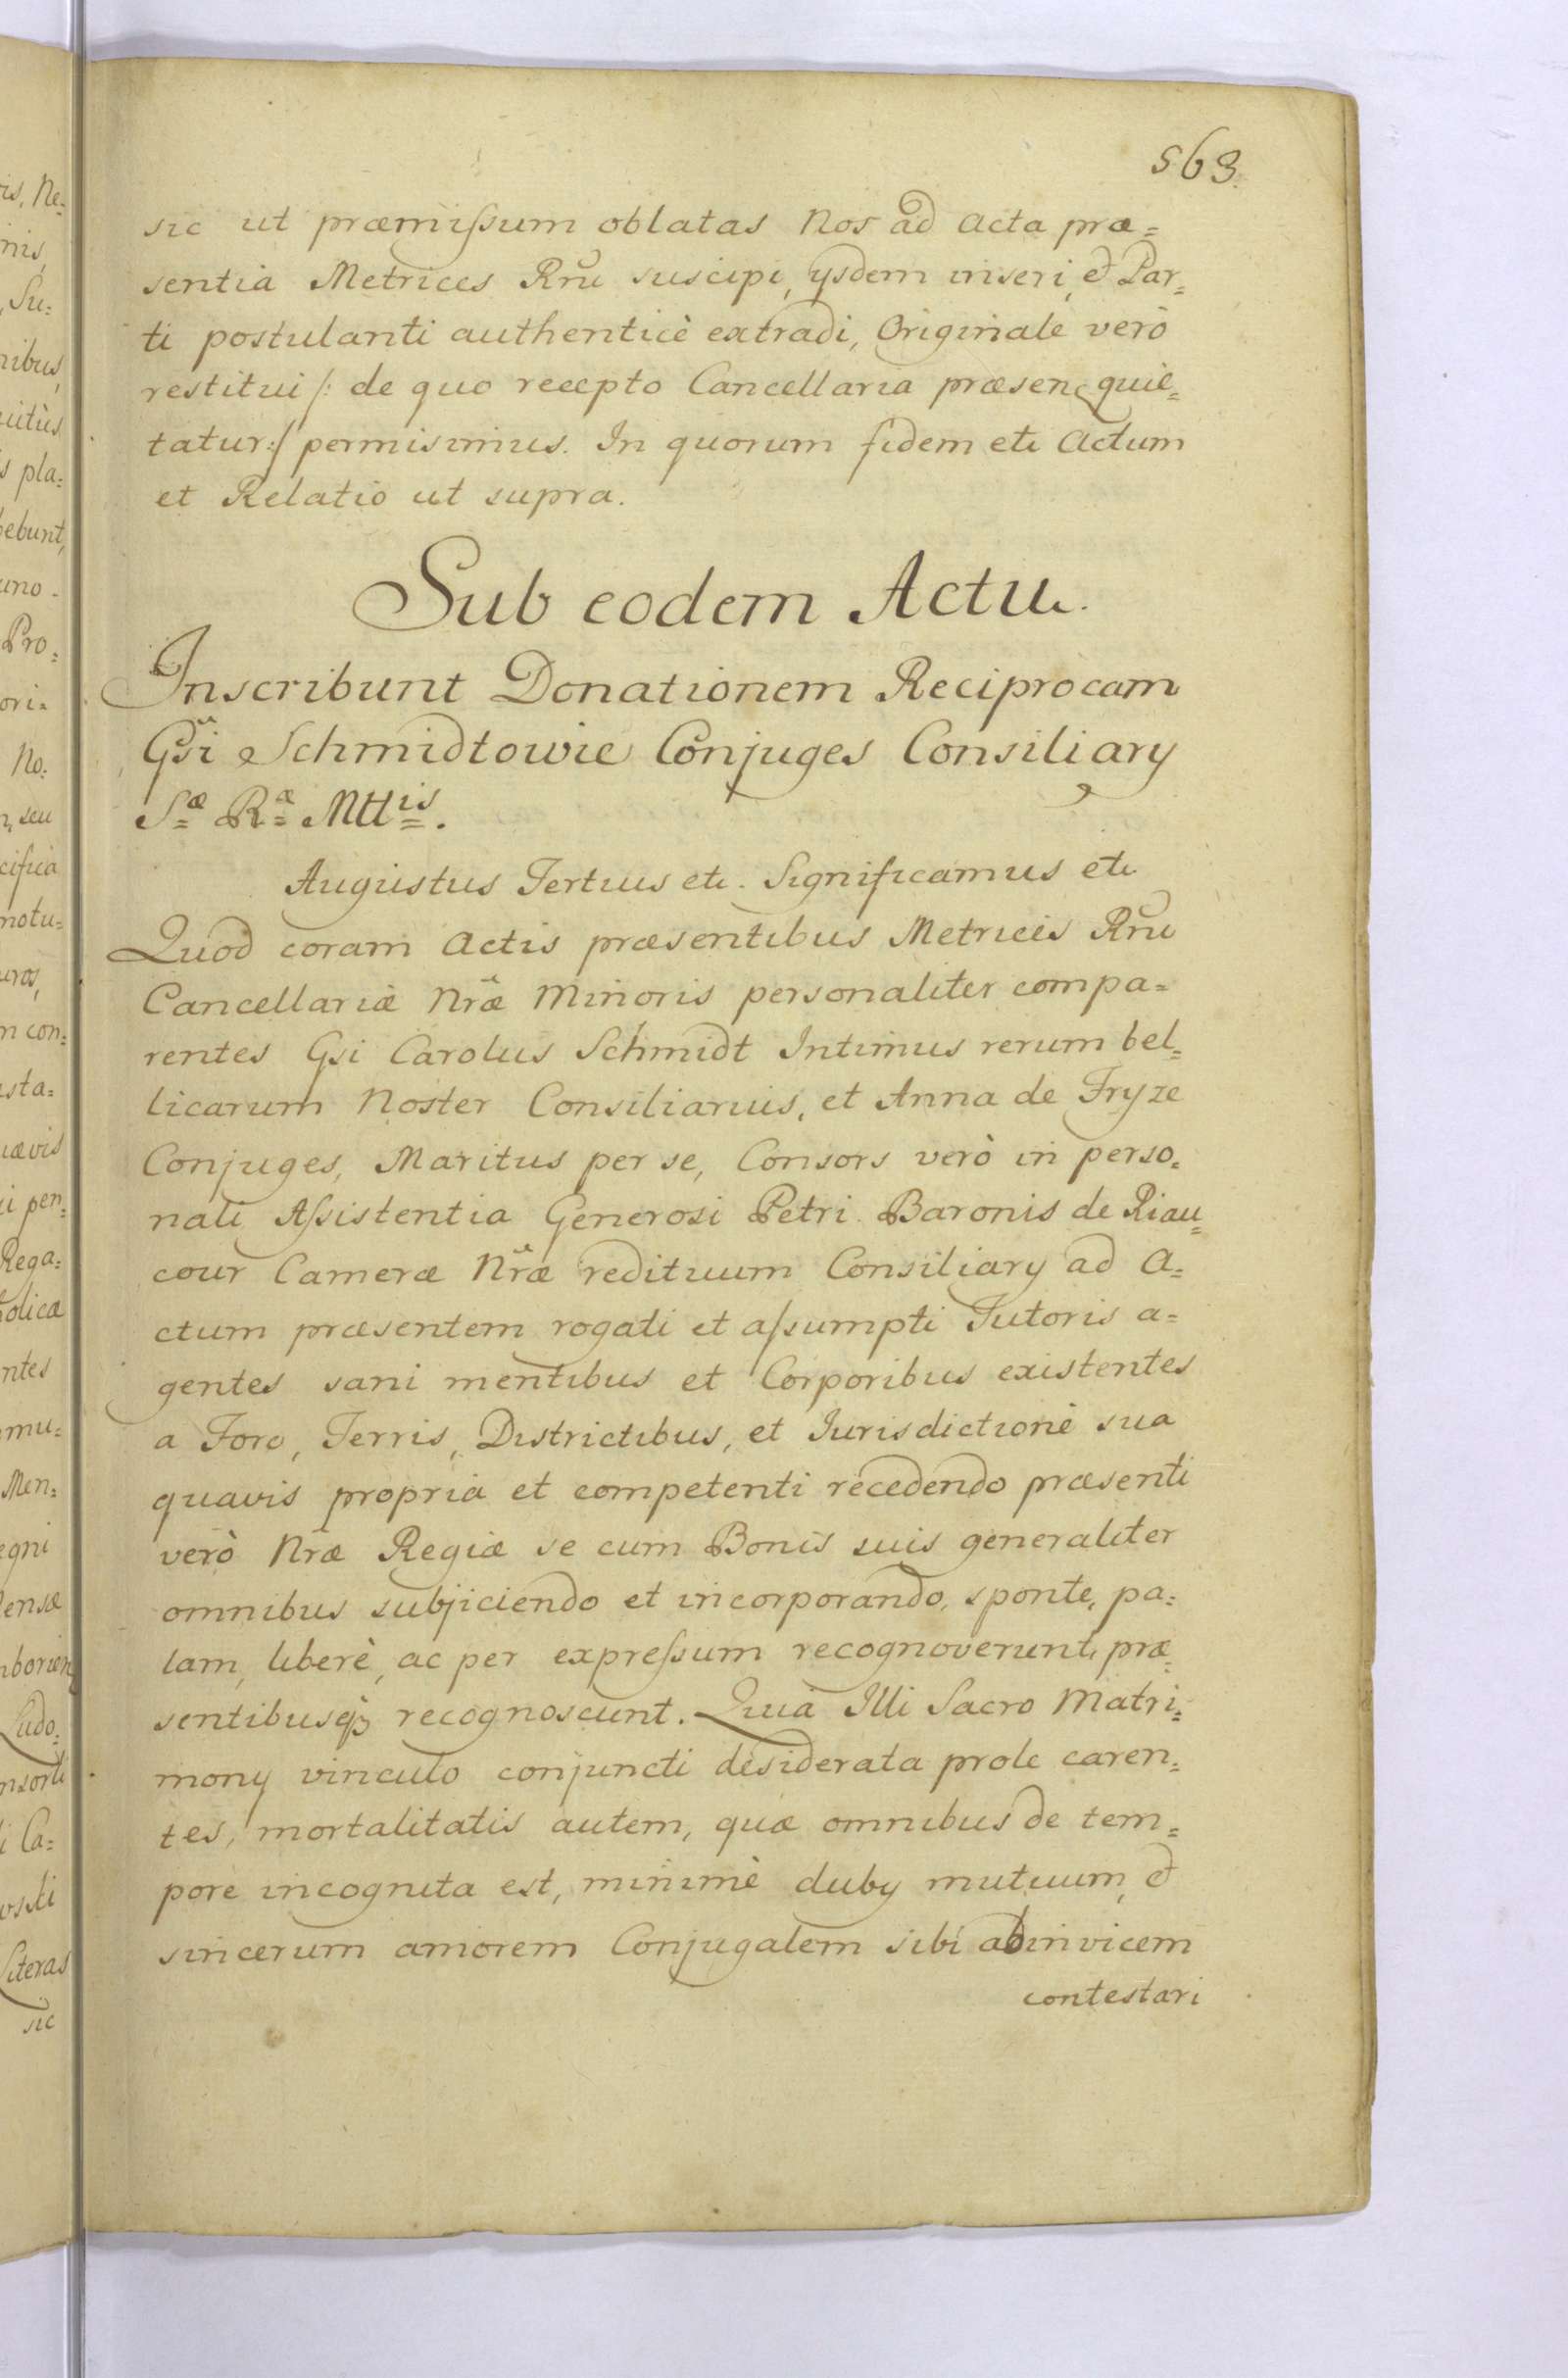 563.
sic ut præmissum oblatas Nos ad Acta præ=
sentia Metrices Rnũ suscipi, ijsdem inseri, et Par=
ti postulanti authenticè extradi, Originale verò
restitui /: de quo recepto Cancellaria præsens quie=
tatur:/ permisimus. In quorum fidem etc Actum
et Relatio ut supra.
Sub eodem Actu.
Inscribunt Donationem Reciprocam
Gsi Schmidtowie Conjuges Consiliarij
Sæ Ræ Mttis.
Augustus Tertius etc. Significamus etc
Quod coram Actis præsentibus Metrices Rnũ
Cancellariæ Nræ Minoris personaliter compa=
rentes Gsi Carolus Schmidt Intimus rerum bel=
licarum Noster Consiliarius, et Anna de Fryze
Conjuges, Maritus per se, Consors verò in perso=
nali Assistentia Generosi Petri Baronis de Riau=
cour Cameræ Nræ redituum Consiliarij ad A=
ctum præsentem rogati et assumpti Tutoris a=
gentes sani mentibus et Corporibus existentes
a Foro, Terris, Districtibus, et Iurisdictione sua
quavis propria et competenti recedendo præsenti
verò Nræ Regiæ se cum Bonis suis generaliter
omnibus subjiciendo et incorporando, sponte, pa=
lam, liberè, ac per expressum recognoverunt, præ=
sentibusq; recognoscunt. Quia Illi Sacro Matri=
monij vinculo conjuncti desiderata prole caren=
tes, mortalitatis autem, quæ omnibus de tem=
pore incognita est, minimè dubij mutuum, et
sincerum amorem Conjugalem sibi abinvicem
contestari
is, Ne=
nis,
Su=
nibus,
s pla=
bebunt,
uno
Pro=
ori=
No=
seu
cifica
notu=
uros,
n con=
sta=
uævis
i pen=
Rega=
tolica
ntes
mu=
Men=
egni
Ludo=
i Ca=
Literas
sic